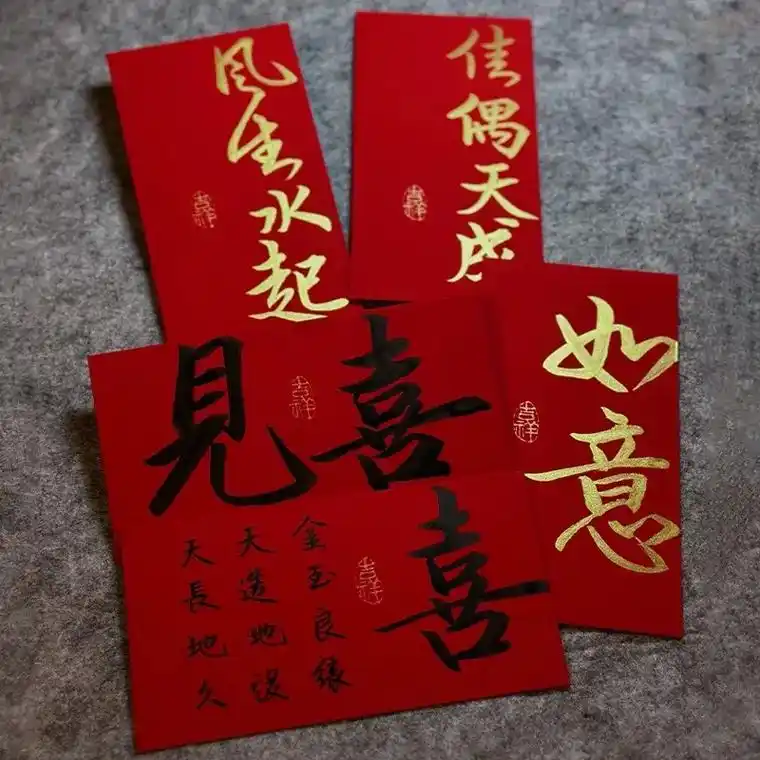 风生水起
吉祥
佳偶天成
吉祥
見喜
吉祥
如意
吉祥
喜
吉祥
金玉良緣
天造地設
天長地久